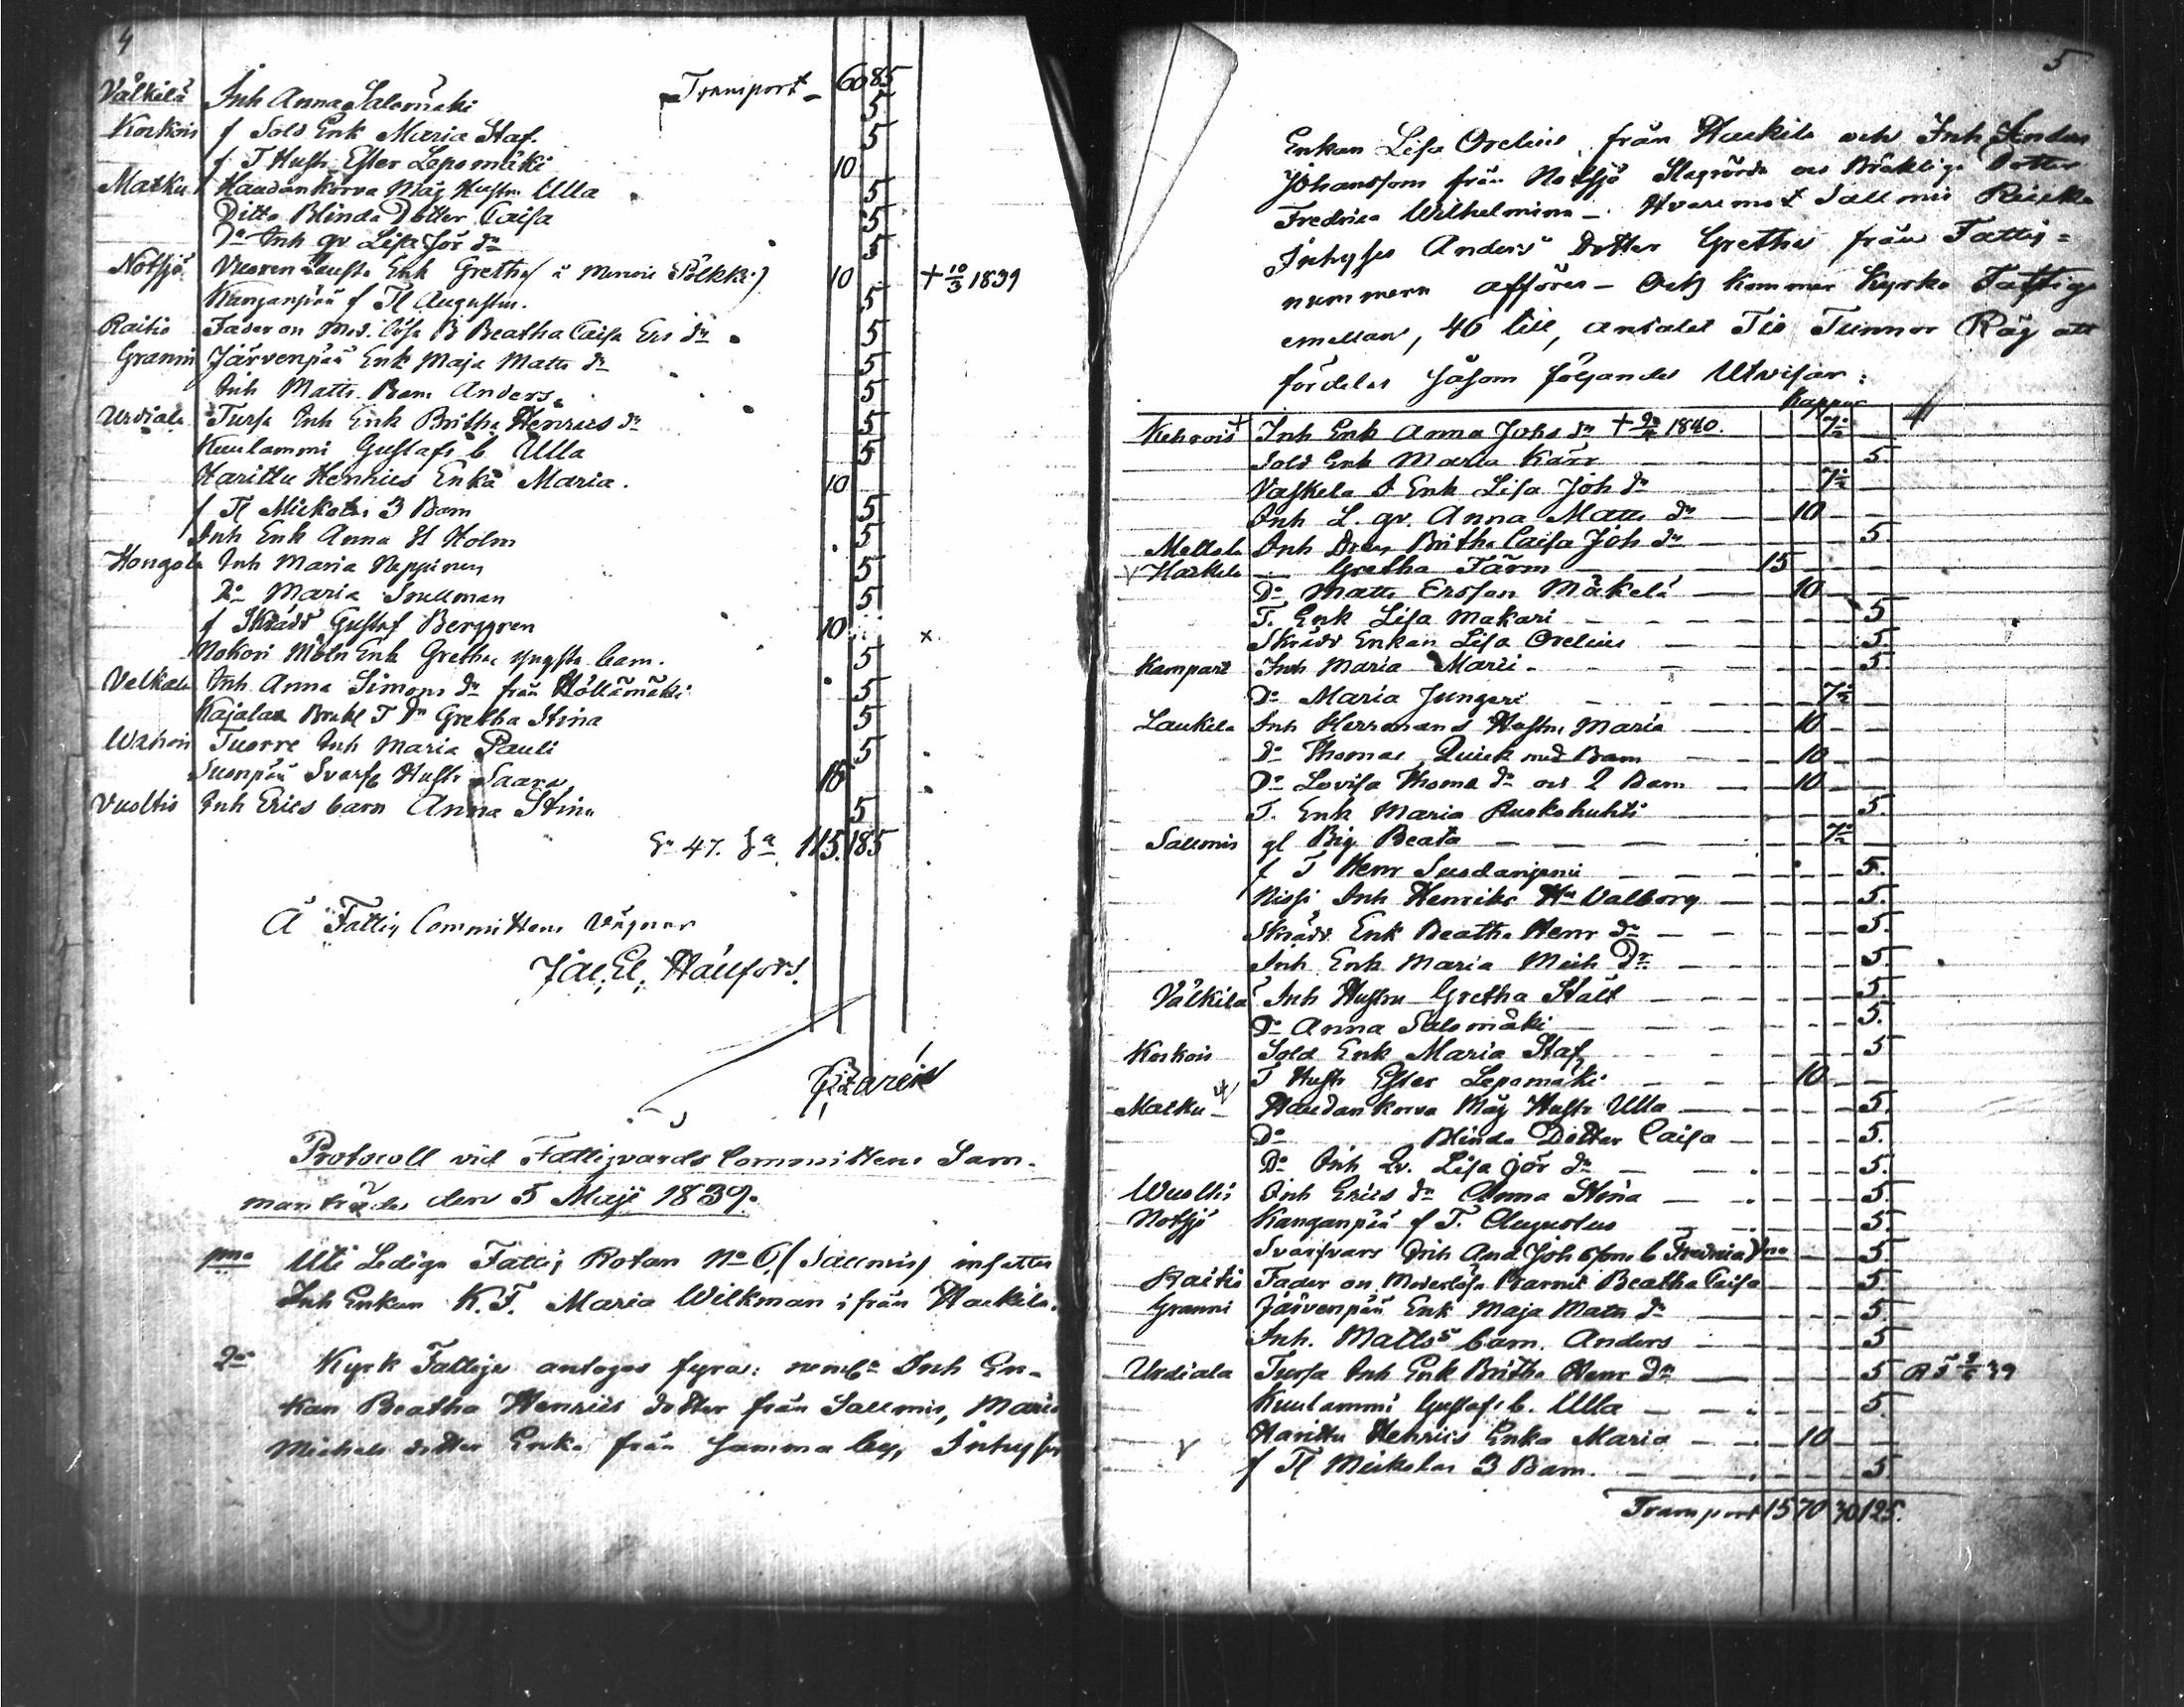 4
Transport 60 85
Välkilä Inh Anna Salomäki 5
Korkois f Sold Enk Maria Staf. 5
f T Hustr Ester Lepomäki 10
Matku Haudankorva Måg Hustru Ulla 5
Ditto Blinda Dotter Caisa 5
Do Inh qv Lisa Jör dr 5
Notsjö Vuoren Enk Gretha 10 + 10/3 1839
Kanganpää f Tl Augustus. 5
Raitio Fader on Mod. lösa B Beatha Caisa Ers dr 5
Granni Järvenpää Enk Maja Matts dr 5
Inh Matts Barn Anders. 5
Urdiala Tursa Inh Enk Britha Henrics dr 5
Kuulammi Gustafs b Ulla 5
Harittu Henrics Enka Maria. 10
f Tl Mickolas 3 Barn 5
Inh Enk Anna H Holm 5
Hongola Inh Maria Neppinen 5
Do Maria Snellman 5
f Skrädd Gustaf Berggren 10 x
Nokori Möln Enk Grethas yngsta barn. 5
Velkala Inh Anna Simons dr från Höllämäki 5
Kajalax Bräkl T Dr Gretha Stina 5
Wahois Tuorre Inh Maria Pauli 5
Suonpää Svarfv Hustr Saara 10
Vuoltis Inh Erics barn Anna Stina 5
Sr 47. Sa 115. 185
Å Fattig Committens Vägnar
Protocoll vid Fattigvårds Committens Sam-
manträde den 5 Maji 1839.
1mo Uti Lediga Fattig Rotan No 6 (Salmis) insattes
Inh Enkan K.F. Maria Wilkman ifrån Haukila.
2o Kyrk Fattige antogos fyra: neml. Inh En-
kan Beatha Henrics dotter från Salmis, Maria
Michels dotter Enka från samma by, Inhyses
5
Enkan Lisa Orelius från Haukila och Inh Anders
Johansson från Notsjö Slagrörde och Bräkliga Dotter
Fredrica Wilhelmina - Hvaremot Salmis
Inhyses Anders Dotter Gretha från Fattig=
nummern afföres - Och kommer Kyrko Fattige
emellan, 46 till antalet Tio Tunnor Råg att
fördelas såsom följandes Utvisar:
Kappar
Kehrois + Inh Enk Anna Johs dr + 1840. 7½
Sold Enk Maria Kärr 5.
Vaskela d Enk Lisa Joh dr 7½
Inh L. qv. Anna Matts dr 10
Mellola Inh Britha Caisa Joh dr 5
v Harkela Gretha Färm 15
Do Matts Ersson Mäkelä 10
T. Enk Lisa Makari 5
Skrädd Enkan Lisa Orelius 5.
Kampare Inh Maria Marii 5
Do Maria Jungari 7½
Laukela Inh Hermans Hustru Maria 10
Do Thomas Quick med Barn 10
Do Lovisa Thoma dr och 2 Barn 10
T. Enk Maria Ruokohuhti 5.
Salmis gl Pig Beata 7½
f T Henr Susdanjemi 5.
Nissi Inh Henriks Hu Valborg 5.
Skrädd. Enk Beatha Henr dr 5.
Inh Enk Maria Mich Dr 5.
Välkilä Inh Hustru Gretha Stålt 5.
Do Anna Salomäki 5.
Korkois Sold Enk Maria Staf 5
T Hustr Ester Lepomäki 10
Matku Haudankorva Måg Hustr Ulla 5.
Do Blinda Dotter Caisa 5.
Do Inh Qv. Lisa Jör dr 5.
Wuoltis Inh Erics dr Anna Stina 5.
Notsjö Kanganpää f T. Augustus 5.
Svarfvars Inh And Joh sons b Fredrica 5.
Raitio Fader on Moderlösa Barnet Beatha Caisa 5.
Granni Järvenpää Enk Maja Matts dr 5.
Inh. Matts barn. Anders 5
Urdiala Tursa Inh Enk Britha Henr dr 5
Kuulammi Gustafs b. Ulla 5.
v Harittu Henrics Enka Maria 10
f Tl Mickolas 3 Barn. 5
Transport 15 70 30 125.